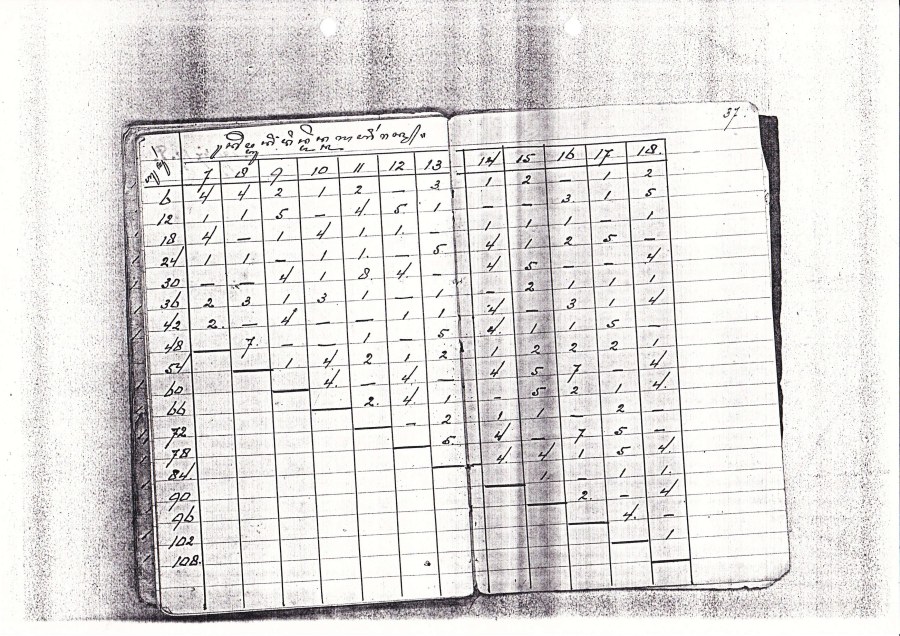 37.
7 8 9 10 11 12 13 14 15 16 17 18.
6 4 4 2 1 2 — 3 1 2 — 1 2
12 1 1 5 — 4. 5. 1 — — 3. 1 5
18 4 — 1 4 1 1. — 1 1 1 — 1
24 1 1 — 1 1. — 5 4 1 2 5 —
30 — — 4 1 8 4 — 4 5 — — 4
36 2 3 1 3 1 — 1 — 2 1 1 1
42 2. — 4 — — 1 1 4 — 3 1 4
48 — 7 — — 1 — 5 4. 1 1 5 —
54 — 1 4 2 1 2 1 2 2 2 1
60 — 4. — 4. — 4 5 7 — 4
66 — 2. 4 1 — 5 2 1 4.
72 — — 2 1 1 — 2 —
78 — 5. 4 — 7 5 —
84 — 4. 4 1 5 4.
90 — 1. — 1 1.
96 — 2. — 4
102 — 4. —
108. — 1